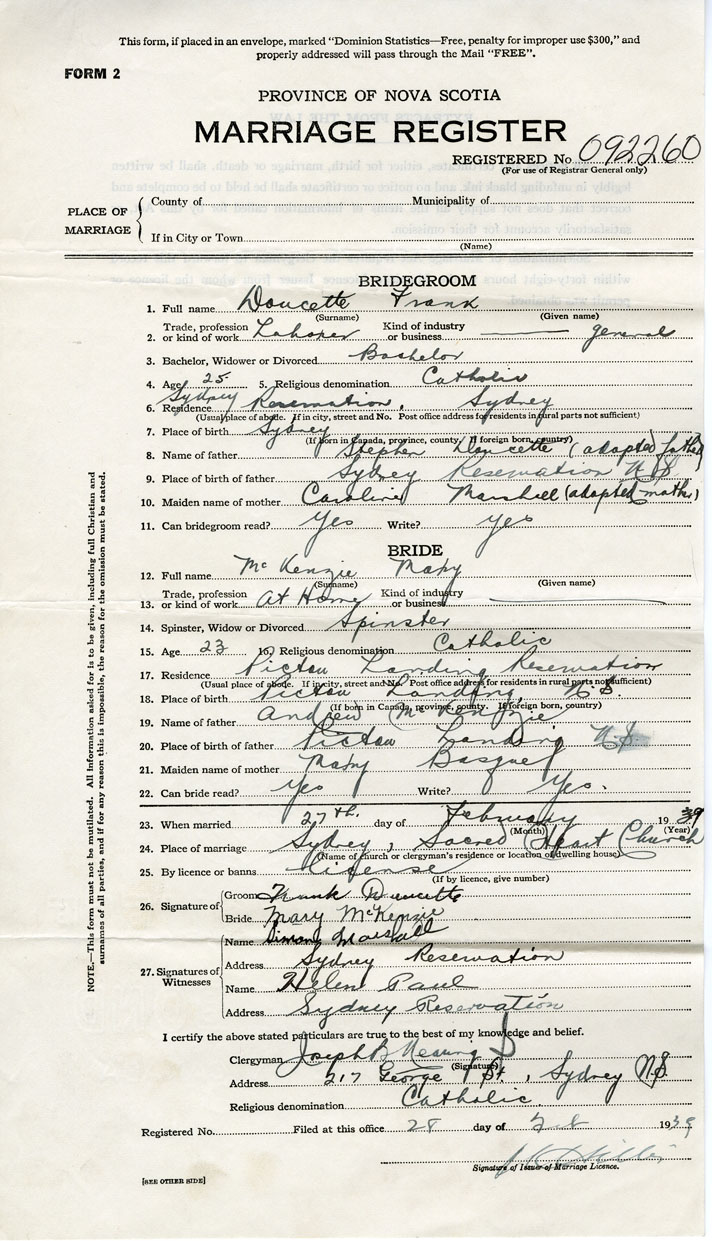 This form, if placed in an envelope, marked “Dominion Statistics—Free, penalty for improper use $300,” and
properly addressed will pass through the Mail “FREE”.
FORM 2
PROVINCE OF NOVA SCOTIA
MARRIAGE REGISTER
REGISTERED No 092260
(For use of Registrar General only)
PLACE OF MARRIAGE
County of Municipality of
If in City or Town
(Name)
BRIDEGROOM
1. Full name Doucette Frank
(Surname) (Given name)
2. Trade, profession or kind of work Laborer Kind of industry or business general
3. Bachelor, Widower or Divorced Bachelor
4. Age 25 5. Religious denomination Catholic
6. Residence Sydney Reservation, Sydney
(Usual place of abode. If in city, street and No. Post office address for residents in rural parts not sufficient)
7. Place of birth Sydney
(If born in Canada, province, county. If foreign born, country)
8. Name of father Stephen Doucette (adapted father)
9. Place of birth of father Sydney Reservation N.S.
10. Maiden name of mother Caroline Marshall (adapted mother)
11. Can bridegroom read? Yes Write? yes
BRIDE
12. Full name McKenzie Mary
(Surname) (Given name)
13. Trade, profession or kind of work At Home Kind of industry or business
14. Spinster, Widow or Divorced Spinster
15. Age 23 16. Religious denomination Catholic
17. Residence Pictou Landing Reservation
(Usual place of abode. If in city, street and No. Post office address for residents in rural parts not sufficient)
18. Place of birth Pictou Landing, N.S.
(If born in Canada, province, county. If foreign born, country)
19. Name of father Andrew McKenzie
20. Place of birth of father Pictou Landing N.S.
21. Maiden name of mother Mary Basque
22. Can bride read? Yes Write? Yes.
23. When married 27th. day of February 1939
(Month) (Year)
24. Place of marriage Sydney, Sacred Heart Church
(Name of church or clergyman's residence or location of dwelling house)
25. By licence or banns License
(If by licence, give number)
26. Signature of
Groom Frank Doucette
Bride Mary McKenzie
27. Signatures of Witnesses
Name Simon Marshall
Address Sydney Reservation
Name Helen Paul
Address Sydney Reservation
I certify the above stated particulars are true to the best of my knowledge and belief.
Clergyman Joseph B
(Signature)
Address 217 George St., Sydney N.S.
Religious denomination Catholic
Registered No. Filed at this office 28 day of Feb 1939
Signature of Issuer of Marriage Licence.
[SEE OTHER SIDE]
NOTE.—This form must not be mutilated. All information asked for is to be given, including full Christian and
surnames of all parties, and if for any reason this is impossible, the reason for the omission must be stated.